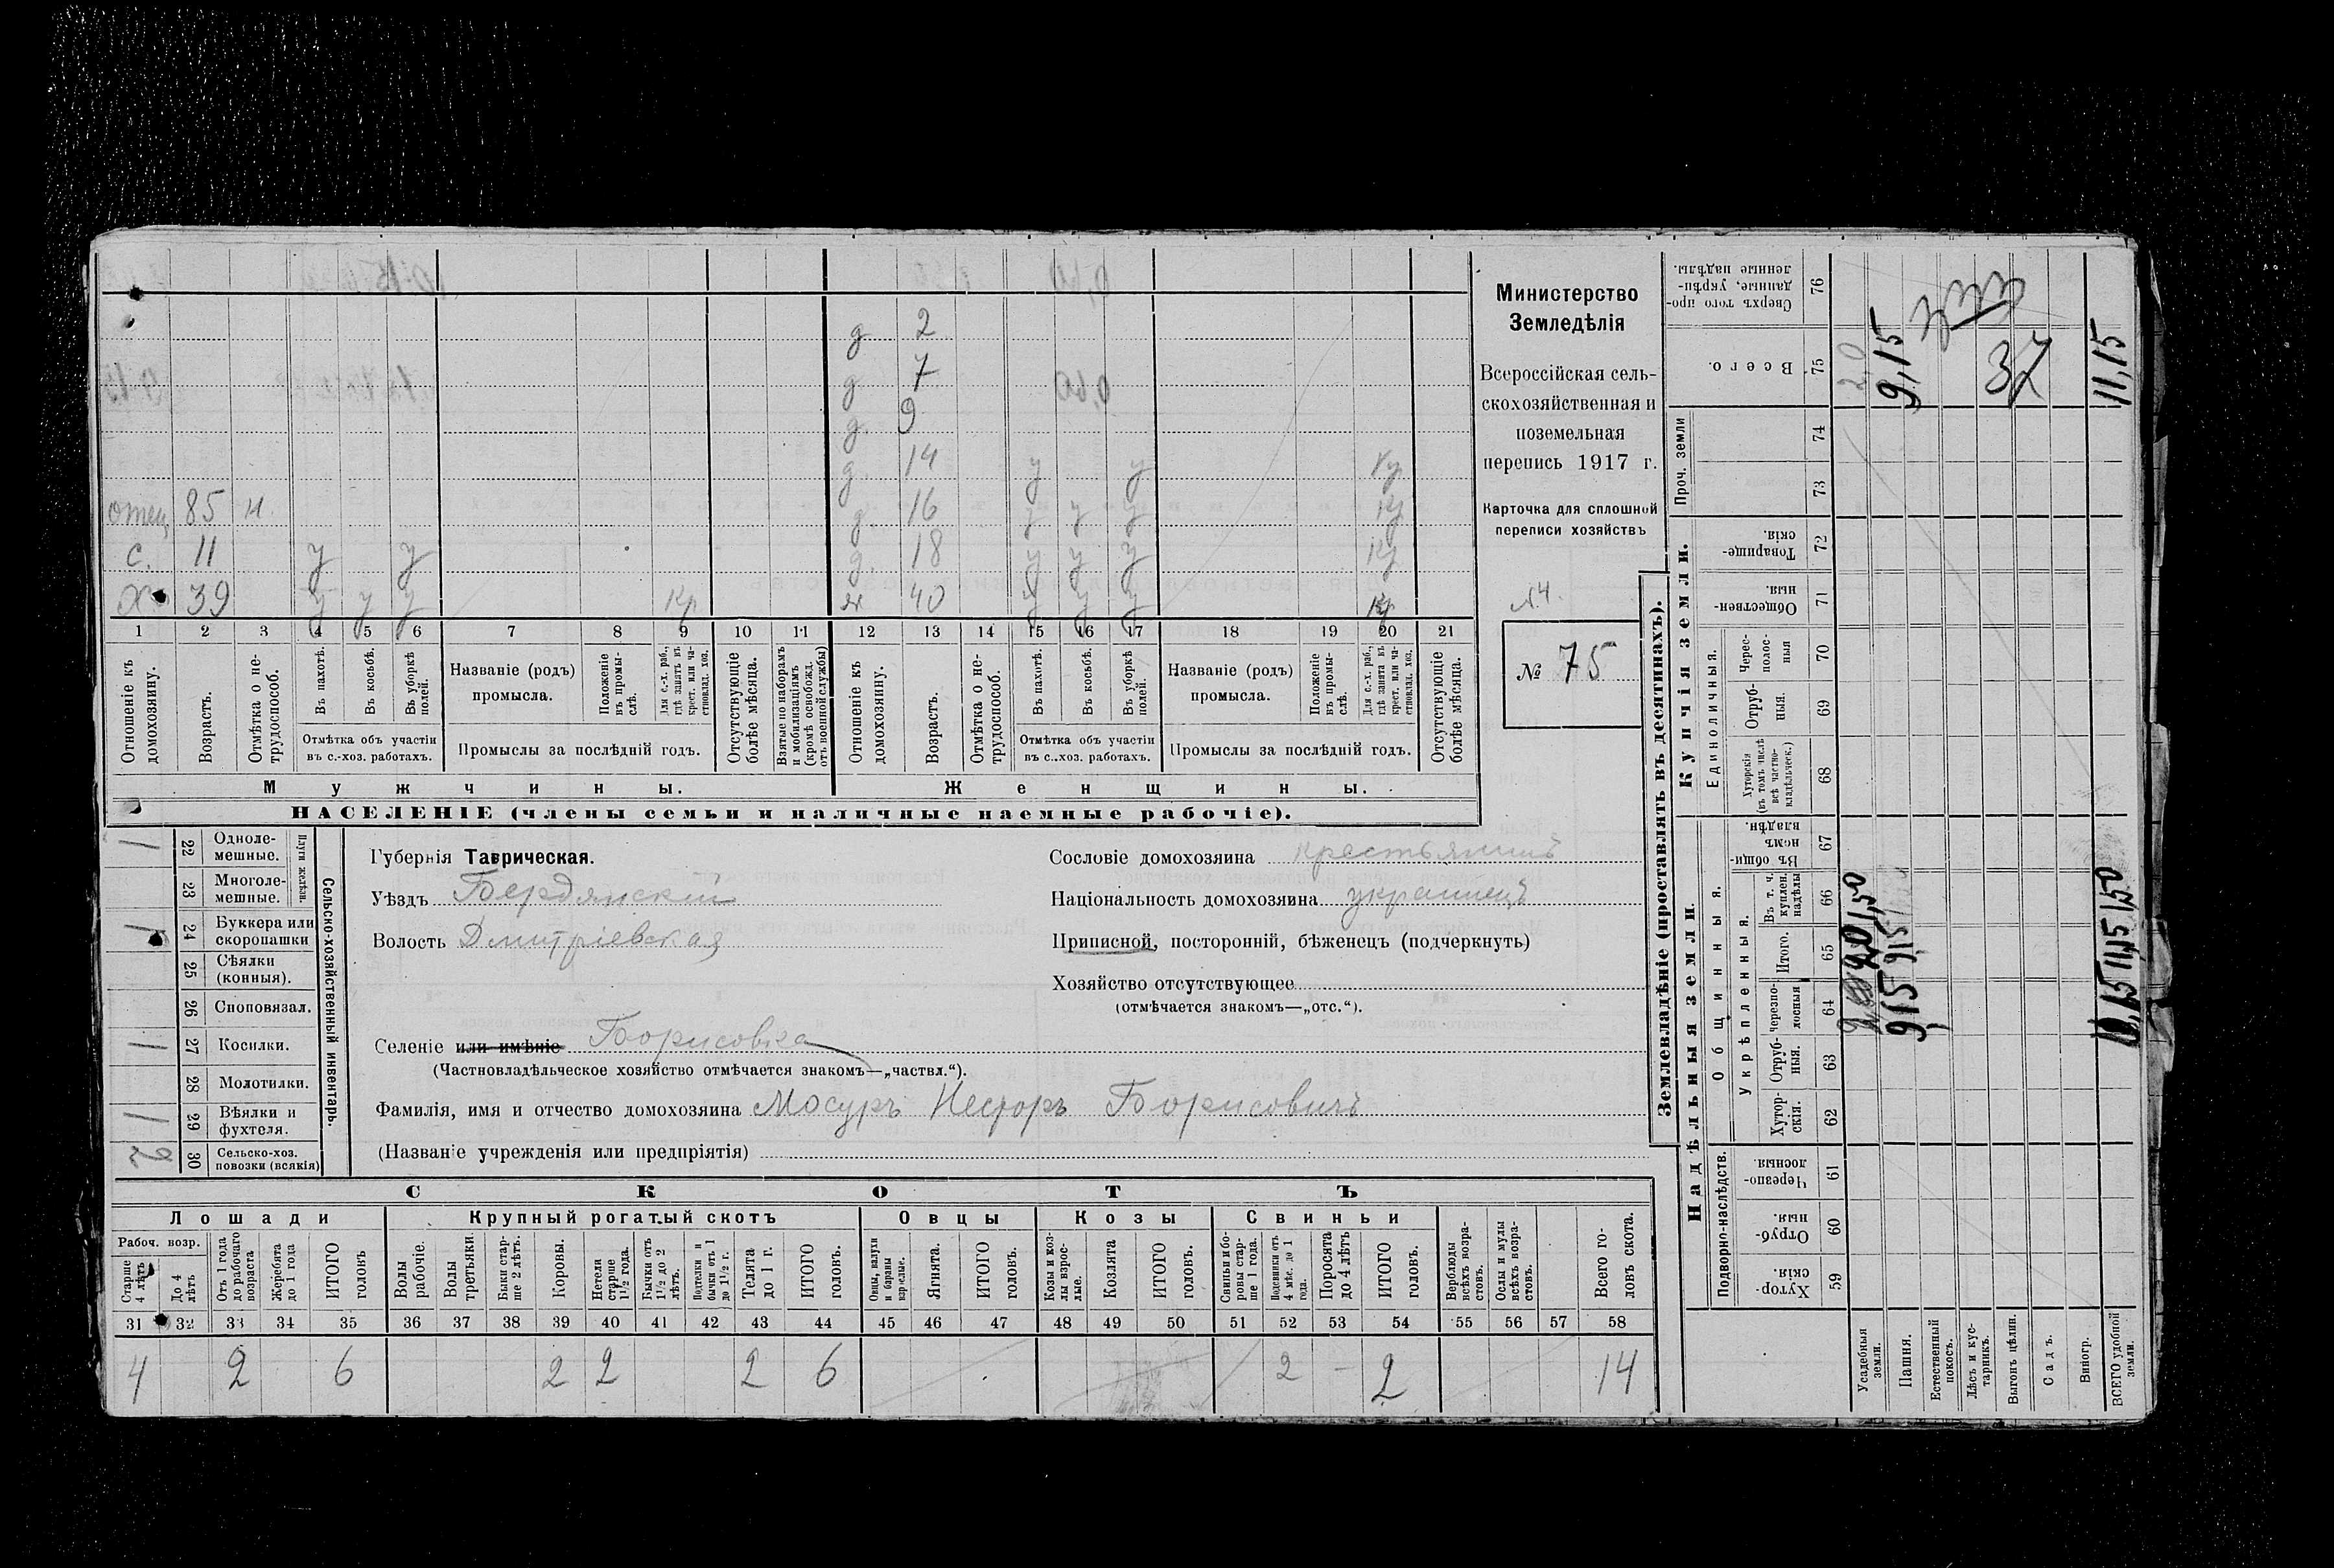 д 2
д 7
д. 9
д. 14 у у Кр
отец 85 н. д. 16 у у у Кр
с. 11 у у д. 18 у у у Кр
х 39 у у у Кр ж 40 у у у Кр
1 2 3 4 5 6 7 8 9 10 11 12 13 14 15 16 17 18 19 20 21
Отношеніе къ домохозяину.
Возрастъ.
Отмѣтка о нетрудоспособ.
Въ пахотѣ.
Въ косьбѣ.
Въ уборкѣ полей.
Отмѣтка объ участіи въ с.-хоз. работахъ.
Названіе (родъ) промысла.
Положеніе въ промыслѣ.
Для с.-х. раб., гдѣ занятъ въ крест. или частновлад. хоз.
Промыслы за послѣдній годъ.
Отсутствующіе болѣе мѣсяца.
Взятые по наборамъ и мобилизаціямъ (кромѣ освобожд. отъ военной службы)
Отношеніе къ домохозяину.
Возрастъ.
Отмѣтка о нетрудоспособ.
Въ пахотѣ.
Въ косьбѣ.
Въ уборкѣ полей.
Отмѣтка объ участіи въ с.-хоз. работахъ.
Названіе (родъ) промысла.
Положеніе въ промыслѣ.
Для с.-х. раб., гдѣ занята въ крест. или частновлад. хоз.
Промыслы за послѣдній годъ.
Отсутствующіе болѣе мѣсяца.
Мужчины. Женщины.
НАСЕЛЕНІЕ (члены семьи и наличные наемные рабочіе).
Министерство
Земледѣлія
Всероссійская сель-
скохозяйственная и
поземельная
перепись 1917 г.
Карточка для сплошной
переписи хозяйствъ
№4.
№ 75
Сельско-хозяйственный инвентарь.
Плуги желѣзн.
1 22 Одноле-
мешные.
23 Многоле-
мешные.
1 24 Буккера или
скоропашки
25 Сѣялки
(конныя).
26 Сноповязал.
1 27 Косилки.
28 Молотилки.
1 29 Вѣялки и
фухтеля.
2 30 Сельско-хоз.
повозки (всякія)
Губернія Таврическая.
Уѣздъ Бердянскій
Волость Дмитріевская
Сословіе домохозяина крестьянинъ
Національность домохозяина украинецъ
Приписной, посторонній, бѣженецъ (подчеркнуть)
Хозяйство отсутствующее
(отмѣчается знакомъ—„отс.“).
Селеніе или имѣніе Борисовка
(Частновладѣльческое хозяйство отмѣчается знакомъ—„частвл.“).
Фамилія, имя и отчество домохозяина Мосуръ Несторъ Борисовичъ
(Названіе учрежденія или предпріятія)
СКОТЪ
Лошади Крупный рогатый скотъ Овцы Козы Свиньи
Рабоч. возр.
Старше 4 лѣтъ
До 4 лѣтъ
Отъ 1 года до рабочаго возраста
Жеребята до 1 года
ИТОГО головъ
Волы рабочіе.
Волы третьяки.
Быки старше 2 лѣтъ.
Коровы.
Нетели старше 1 1/2 года.
Бычки отъ 1 1/2 до 2 лѣтъ.
Подтелки и бычки отъ 1 до 1 1/2 г.
Телята до 1 г.
ИТОГО головъ.
Овцы, валухи и бараны взрослые.
Ягнята.
ИТОГО головъ.
Козы и козлы взрослые.
Козлята
ИТОГО головъ.
Свиньи и боровы старше 1 года.
Подсвинки отъ 4 мѣс. до 1 года.
Поросята до 4 лѣтъ
ИТОГО головъ.
Верблюды всѣхъ возрастовъ.
Ослы и мулы всѣхъ возрастовъ.
Всего головъ скота.
31 32 33 34 35 36 37 38 39 40 41 42 43 44 45 46 47 48 49 50 51 52 53 54 55 56 57 58
4 2 6 2 2 2 6 2 – 2 14
Землевладѣніе (проставлять въ десятинахъ).
Надѣльныя земли.
Купчія земли.
Проч. земли
Подворно-наслѣдств.
Общинныя.
Укрѣпленныя.
Единоличныя.
Хуторскія. 59
Отрубныя. 60
Черезполосныя. 61
Хуторскія. 62
Отрубныя. 63
Черезполосныя 64
Итого. 65
Въ т. ч. куплен. надѣлы 66
Въ общинномъ владѣн. 67
Хуторскія (въ томъ числѣ всѣ частновладѣльческ.) 68
Отрубныя. 69
Чересполосныя 70
Общественныя. 71
Товарищескія. 72
73
74
Всего. 75
Сверхъ того проданные, укрѣпленные надѣлы. 76
Усадебныя земли. 2,0
Пашня. 9,15 9,15 9,15
Естественный покосъ.
Лѣсъ и кустарникъ.
Выгонъ цѣлин.
Садъ.
Виногр.
ВСЕГО удобной земли. 11,15 1,50 11,15
37